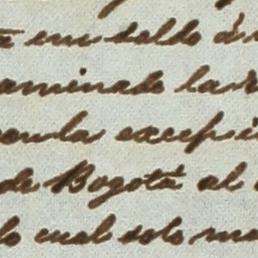 en su saldo á
aminado la
con la excepci
de Bogotá al
lo cual solo ma